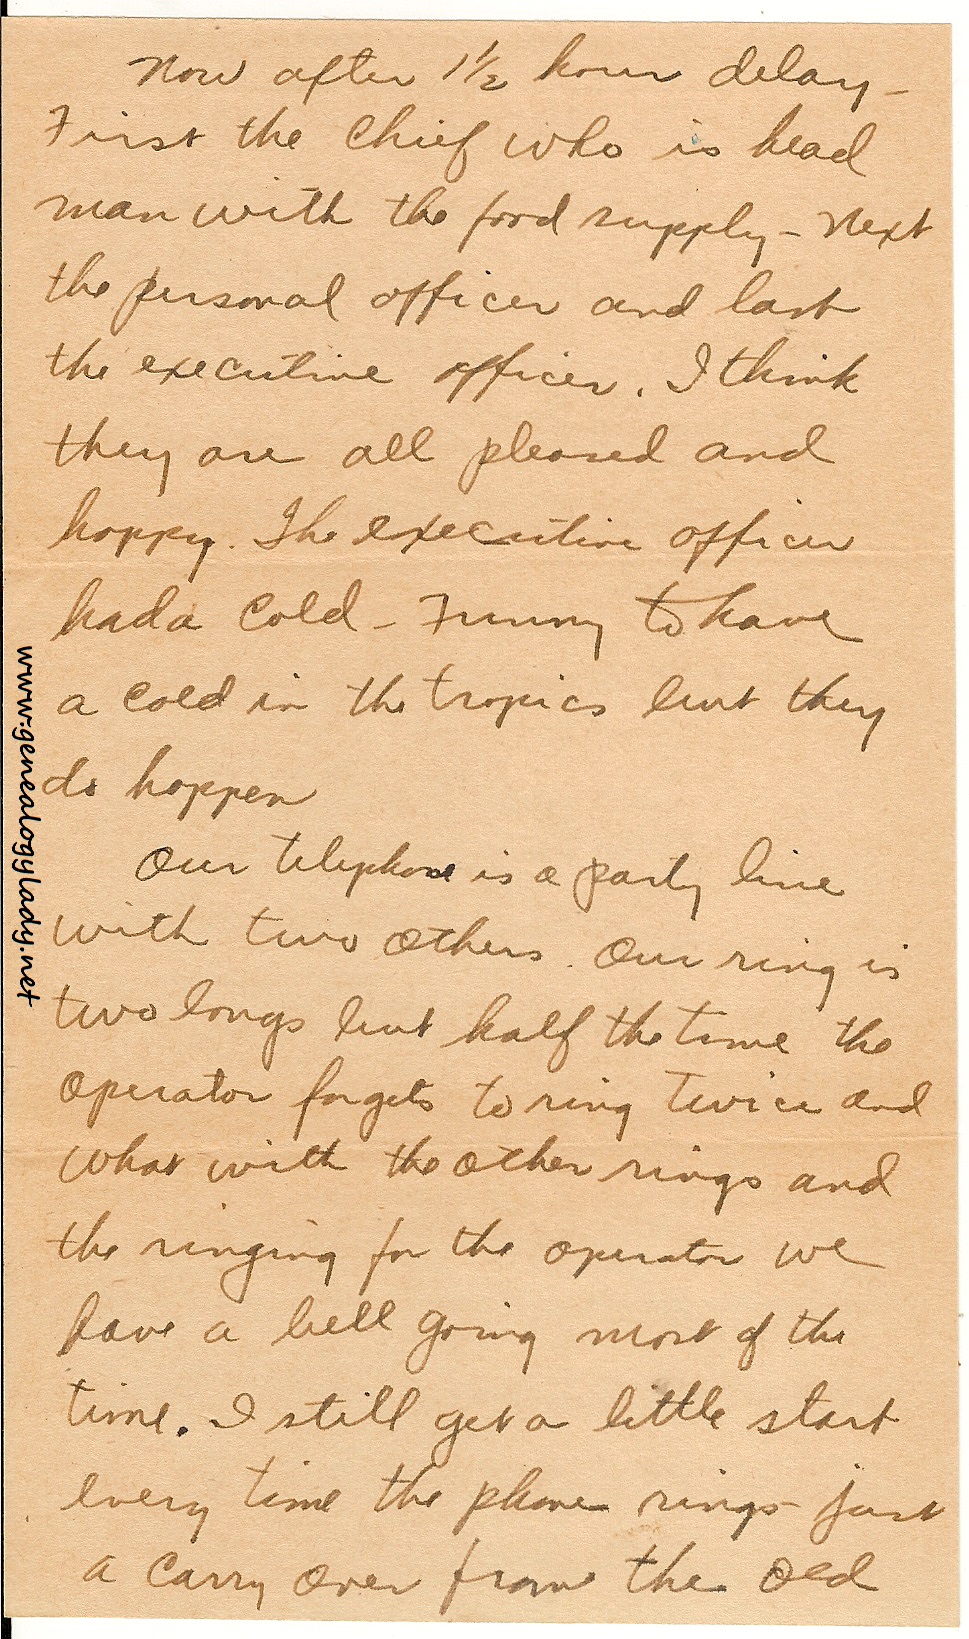 Now after 1½ hour delay -
First the Chief who is head
man with the food supply - Next
the personal officer and last
the executive officer. I think
they are all pleased and
happy. The executive officer
had a cold - Funny to have
a cold in the tropics but they
do happen
Our telephone is a party line
with two others. Our ring is
two longs but half the time the
operator forgets to ring twice and
what with the other rings and
the ringing for the operator we
have a bell going most of the
time. I still get a little start
every time the phone rings - just
a carry over from the old
www.genealogylady.net